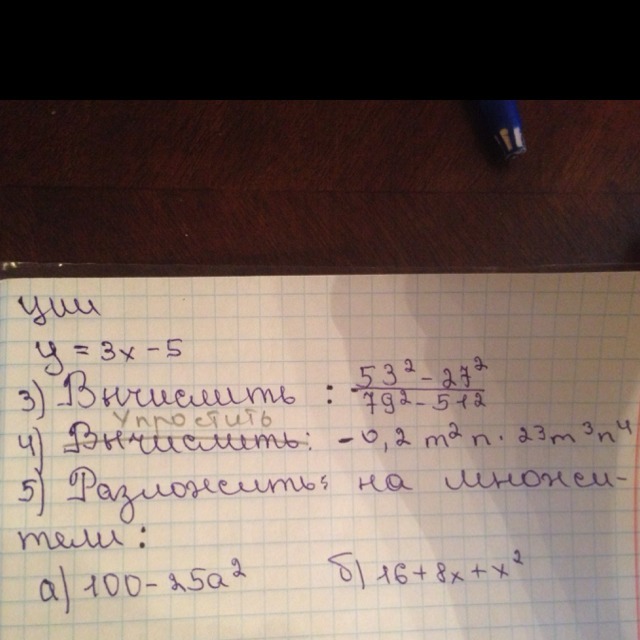 ции
y = 3x - 5
3) Вычислить : \frac{53² - 27²}{79² - 51²}
Упростить
4) Вычислить: - 0,2 m² n · 23 m³ n⁴
5) Разложить: на множи-
тели:
а) 100 - 25a² б) 16 + 8x + x²